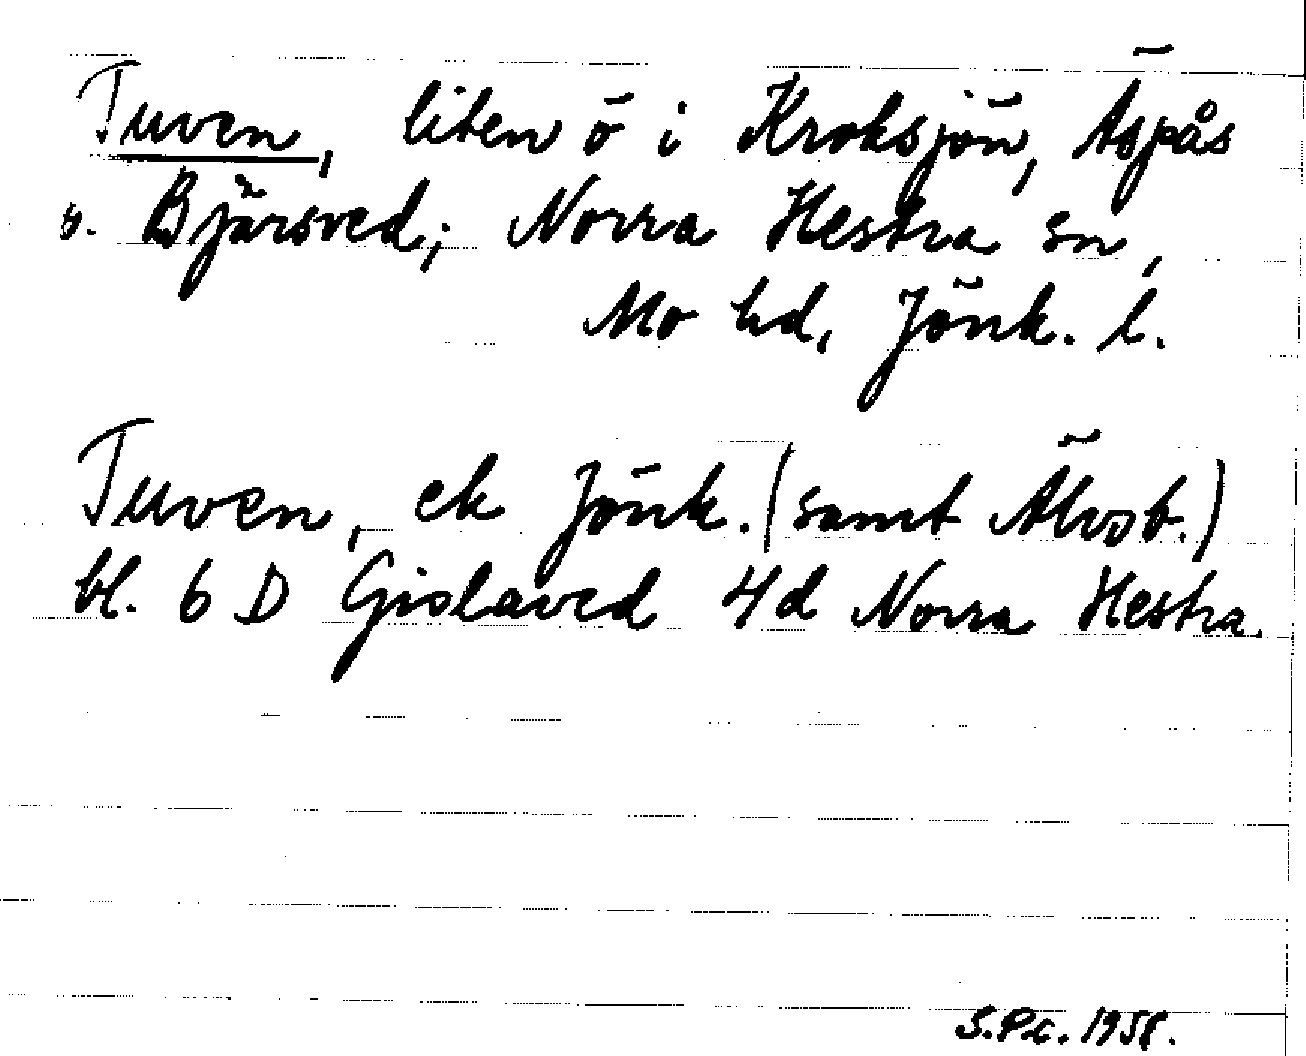 Tuven, liten ö i Kroksjön, Äspås
o. Bjärsved; Norra Hestra sn,
Mo hd, Jönk. l.
Tuven, ek Jönk. (samt Älvsb.)
bl. 6 D Gislaved 4d Norra Hestra.
S.P.C. 1958.